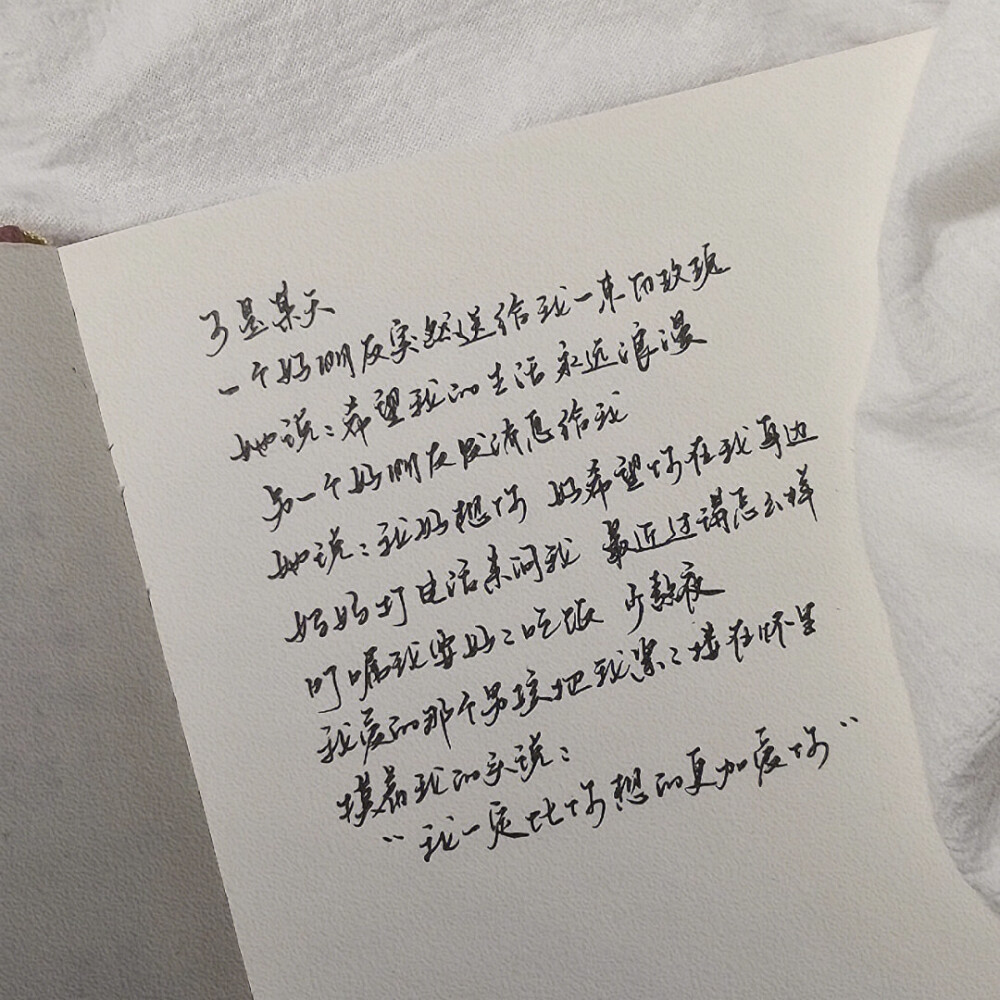 于是某天
一个好朋友突然送给我一束白玫瑰
她说：希望我的生活永远浪漫
另一个好朋友发消息给我
她说：我好想你 好希望你在我身边
妈妈打电话来问我 最近过得怎么样
叮嘱我要好好吃饭 少熬夜
我爱的那个男孩把我紧紧搂在怀里
摸着我的头说：
“我一定比你想的更加爱你”